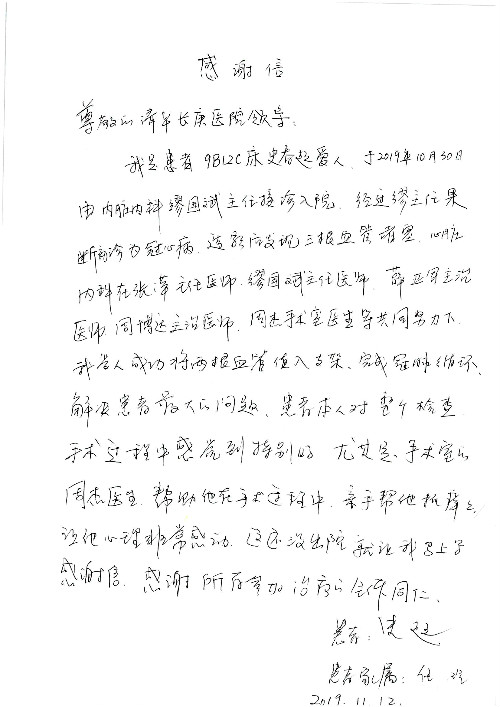 感谢信
尊敬的清华长庚医院领导:
我是患者9B12C床史春超爱人,于2019年10月30日
由心脏内科缪国斌主任接诊入院,经过缪主任果
断确诊为冠心病,造影后发现三根血管堵塞,心脏
内科在张萍主任医师,缪国斌主任医师,薛亚军主治
医师,周博达主治医师,周杰手术室医生等共同努力下,
我爱人成功将两根血管值入支架、完成冠脉循环,
解决患者最大的问题、患者本人对整个检查
手术过程中感觉到特别好 尤其是、手术室的
周杰医生 帮助他在手术过程中,亲手帮他抓
让他心理非常感动,这还没出院就让我写上了
感谢信,感谢所有参加治疗的全体同仁、
患者:史超
患者家属:任
2019.11.12.